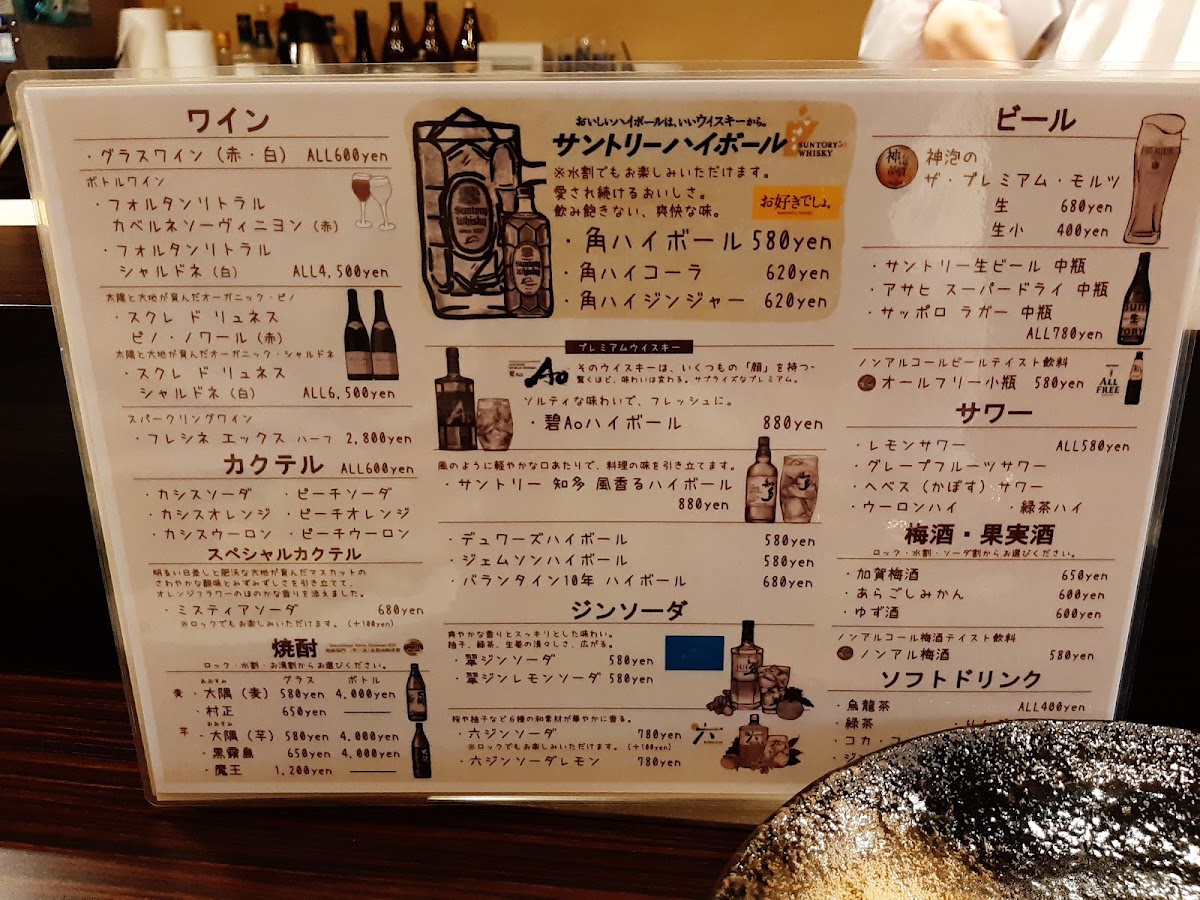 ワイン
・グラスワイン (赤・白) ALL600yen
ボトルワイン
・フォルタンリトラル
カベルネソーヴィニヨン (赤)
・フォルタンリトラル
シャルドネ (白) ALL4,500yen
太陽と大地が育んだオーガニック・ピノ
・スクレ ド リュネス
ピノ・ノワール (赤)
太陽と大地が育んだオーガニック・シャルドネ
・スクレ ド リュネス
シャルドネ (白) ALL6,500yen
スパークリングワイン
・フレシネ エックス ハーフ 2,800yen
カクテル ALL600yen
・カシスソーダ ・ピーチソーダ
・カシスオレンジ ・ピーチオレンジ
・カシスウーロン ・ピーチウーロン
スペシャルカクテル
明るい日差しと肥沃な大地が育んだマスカットの
さわやかな酸味とみずみずしさを引き立てて、
オレンジフラワーのほのかな香りを添えました。
・ミスティアソーダ 680yen
※ロックでもお楽しみいただけます。 (+100yen)
焼酎
ロック・水割・お湯割からお選びください。
グラス ボトル
おおすみ
麦 ・大隅 (麦) 580yen 4,000yen
・村正 650yen
おおすみ
芋 ・大隅 (芋) 580yen 4,000yen
・黒霧島 650yen 4,000yen
・魔王 1,200yen
おいしいハイボールは、いいウイスキーから。
サントリーハイボール
SUNTORY
WHISKY
※水割でもお楽しみいただけます。
愛され続けるおいしさ。
飲み飽きない、爽快な味。
お好きでしょ。
Suntory
Whisky
・角ハイボール 580yen
・角ハイコーラ 620yen
・角ハイジンジャー 620yen
プレミアムウイスキー
Ao
そのウイスキーは、いくつもの「顔」を持つ
驚くほど、味わいは変わる。サプライズなプレミアム。
ソルティな味わいで、フレッシュに。
・碧Aoハイボール 880yen
風のように軽やかな口あたりで、料理の味を引き立てます。
・サントリー 知多 風香るハイボール
880yen
・デュワーズハイボール 580yen
・ジェムソンハイボール 580yen
・バランタイン10年 ハイボール 680yen
ジンソーダ
爽やかな香りとスッキリとした味わい。
柚子、緑茶、生姜の清々しさ、広がる。
・翠ジンソーダ 580yen
・翠ジンレモンソーダ 580yen
桜や柚子など6種の和素材が華やかに香る。
・六ジンソーダ 780yen
※ロックでもお楽しみいただけます。 (+100yen)
・六ジンソーダレモン 780yen
六
ビール
神泡の
ザ・プレミアム・モルツ
生 680yen
生小 400yen
・サントリー生ビール 中瓶
・アサヒ スーパードライ 中瓶
・サッポロ ラガー 中瓶
ALL780yen
ノンアルコールビールテイスト飲料
オールフリー小瓶 580yen
ALL
FREE
サワー
・レモンサワー ALL580yen
・グレープフルーツサワー
・ヘベス (かぼす) サワー
・ウーロンハイ ・緑茶ハイ
梅酒・果実酒
ロック・水割・ソーダ割からお選びください。
・加賀梅酒 650yen
・あらごしみかん 600yen
・ゆず酒 600yen
ノンアルコール梅酒テイスト飲料
ノンアル梅酒 580yen
ソフトドリンク
・烏龍茶 ALL400yen
・緑茶
・コカ・コ